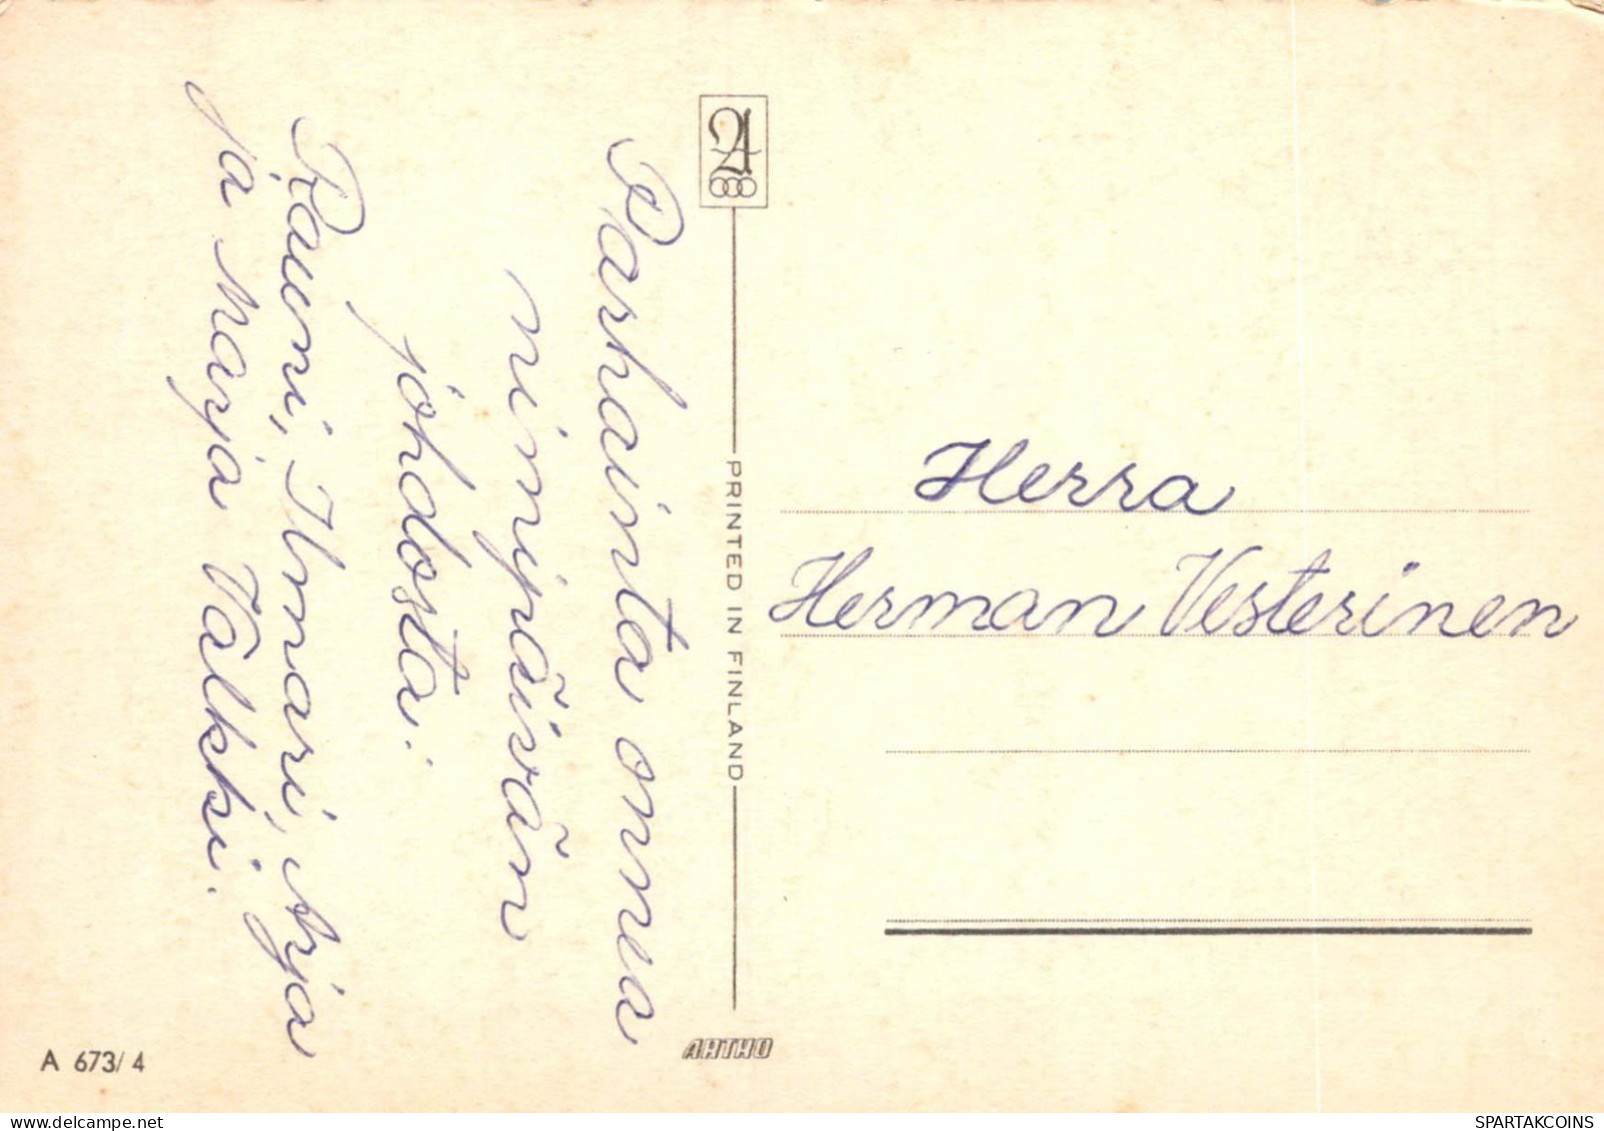 Parhainta onnea
nimipäivän
johdosta.
Rauni, Ilmari, Arja
ja Marja Talkki.
PRINTED IN FINLAND
ARTKO
A 673/4
Herra
Herman Vesterinen
delcampe.net
SPARTAKCOINS